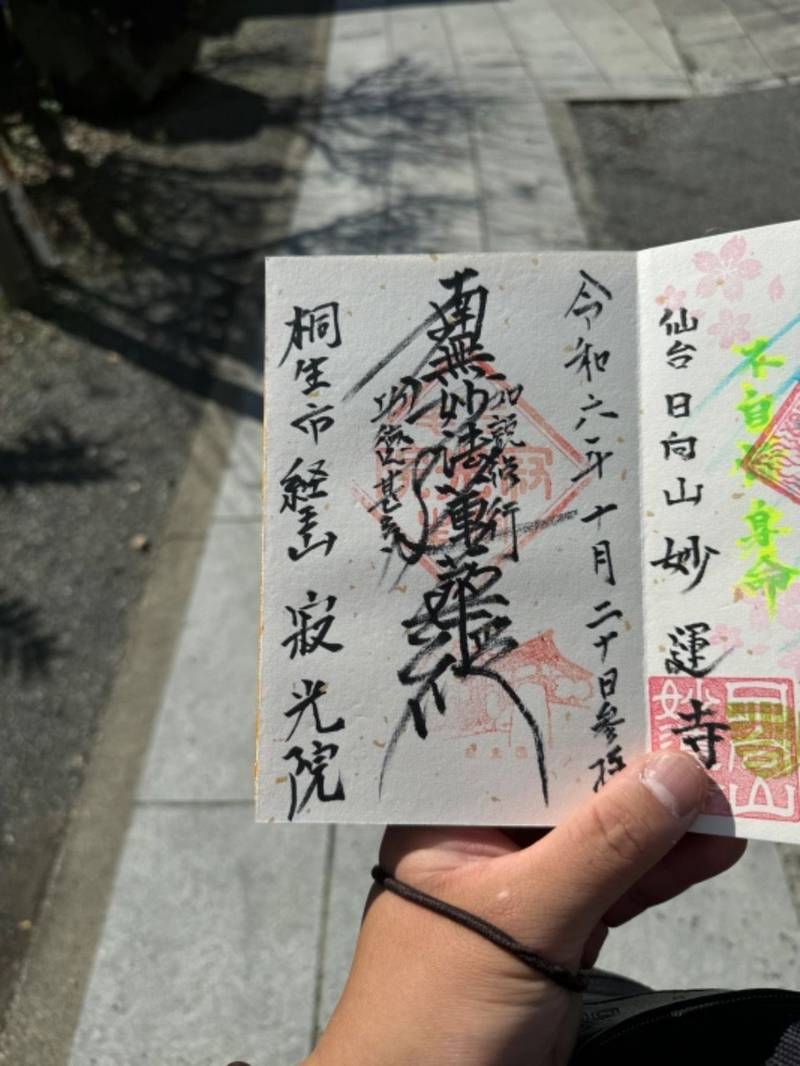 不自惜身命
仙台 日向山 妙運寺
令和六年十月二十日参拝
如説修行
南無妙法蓮華経
功徳甚多
桐生市 経王山 寂光院